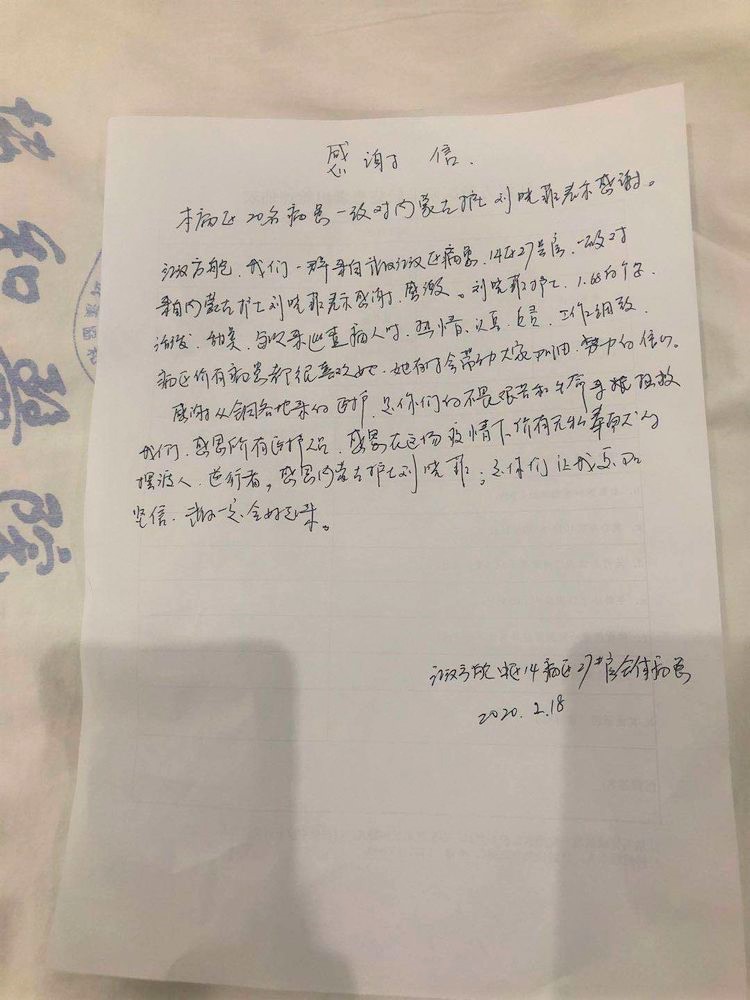 感谢信.
本病区20名病员一致对内蒙古护士刘晓菲表示感谢。
江汉方舱,我们一群来自武汉江汉区病员,14区27号房,一致对
来自内蒙古护士刘晓菲表示感谢,感激。刘晓菲护士,1.68的个子,
甜美,每次来巡查病人时,热情、认真、负责,工作细致,
病区所有病员都很喜欢她,她有时会带动大家加油,努力的信心。
感谢从全国各地来的医护,是你们的不畏艰苦和生命来拯救
我们,感恩所有医护人员,感恩在这场疫情下所有无私奉献的
摆渡人,逆行者,感恩内蒙古护士刘晓菲;是你们让我更加
坚信,我们一定会好起来。
江汉方舱 14病区27#房全体病员
2020.2.18